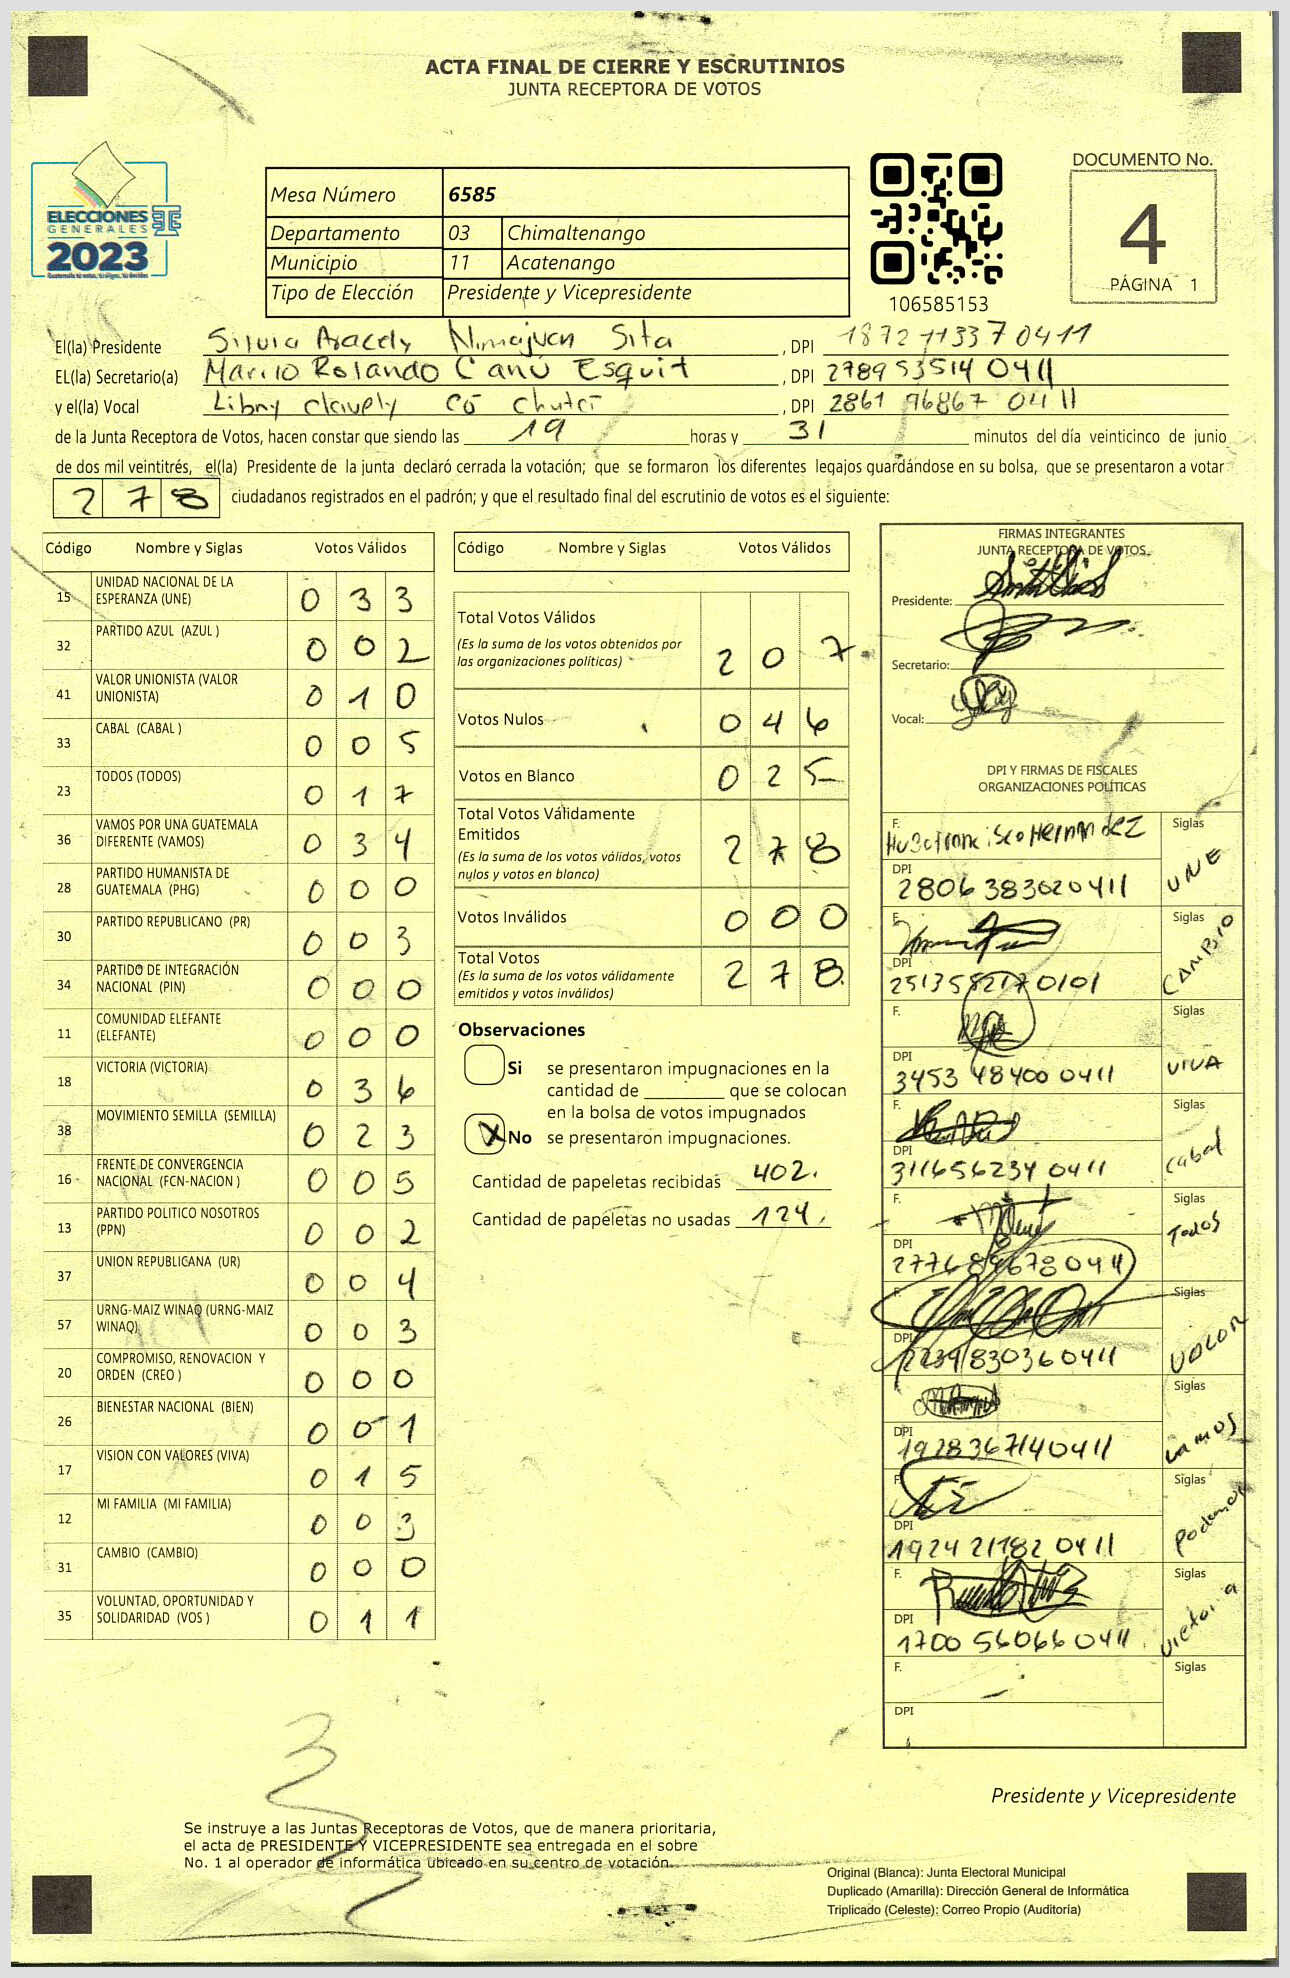 ACTA FINAL DE CIERRE Y ESCRUTINIOS
JUNTA RECEPTORA DE VOTOS
ELECCIONES
GENERALES
2023
Mesa Número 6585
Departamento 03 Chimaltenango
Municipio 11 Acatenango
Tipo de Elección Presidente y Vicepresidente
106585153
DOCUMENTO No.
4
PÁGINA 1
El(la) Presidente Silvia Aracely Nimajuan Sita, DPI 1872 11337 0411
EL(la) Secretario(a) Marito Rolando Canú Esquit, DPI 278953514 0411
y el(la) Vocal Libny, DPI 2861 96867 0411
de la Junta Receptora de Votos, hacen constar que siendo las 19 horas y 31 minutos del día veinticinco de junio
de dos mil veintitrés, el(la) Presidente de la junta declaró cerrada la votación; que se formaron los diferentes legajos guardándose en su bolsa, que se presentaron a votar
278 ciudadanos registrados en el padrón; y que el resultado final del escrutinio de votos es el siguiente:
Código Nombre y Siglas Votos Válidos
15 UNIDAD NACIONAL DE LA ESPERANZA (UNE) 033
32 PARTIDO AZUL (AZUL ) 002
41 VALOR UNIONISTA (VALOR UNIONISTA) 010
33 CABAL (CABAL ) 005
23 TODOS (TODOS) 017
36 VAMOS POR UNA GUATEMALA DIFERENTE (VAMOS) 034
28 PARTIDO HUMANISTA DE GUATEMALA (PHG) 000
30 PARTIDO REPUBLICANO (PR) 003
34 PARTIDO DE INTEGRACIÓN NACIONAL (PIN) 000
11 COMUNIDAD ELEFANTE (ELEFANTE) 000
18 VICTORIA (VICTORIA) 036
38 MOVIMIENTO SEMILLA (SEMILLA) 023
16 FRENTE DE CONVERGENCIA NACIONAL (FCN-NACION ) 005
13 PARTIDO POLITICO NOSOTROS (PPN) 002
37 UNION REPUBLICANA (UR) 004
57 URNG-MAIZ WINAQ (URNG-MAIZ WINAQ) 003
20 COMPROMISO, RENOVACION Y ORDEN (CREO ) 000
26 BIENESTAR NACIONAL (BIEN) 001
17 VISION CON VALORES (VIVA) 015
12 MI FAMILIA (MI FAMILIA) 003
31 CAMBIO (CAMBIO) 000
35 VOLUNTAD, OPORTUNIDAD Y SOLIDARIDAD (VOS ) 011
Código Nombre y Siglas Votos Válidos
Total Votos Válidos 207
(Es la suma de los votos obtenidos por
las organizaciones políticas)
Votos Nulos 046
Votos en Blanco 025
Total Votos Válidamente
Emitidos 278
(Es la suma de los votos válidos, votos
nulos y votos en blanco)
Votos Inválidos 000
Total Votos 278
(Es la suma de los votos válidamente
emitidos y votos inválidos)
Observaciones
Si se presentaron impugnaciones en la
cantidad de ________ que se colocan
en la bolsa de votos impugnados
X No se presentaron impugnaciones.
Cantidad de papeletas recibidas 402.
Cantidad de papeletas no usadas 124.
FIRMAS INTEGRANTES
JUNTA RECEPTORA DE VOTOS
Presidente:
Secretario:
Vocal:
DPI Y FIRMAS DE FISCALES
ORGANIZACIONES POLÍTICAS
F. Hugo Francisco Hernandez Siglas UNE
DPI 2806 38302 0411
F. Siglas CAMBIO
DPI 251358217 0101
F. Siglas VIVA
DPI 3453 48400 0411
F. Siglas Cabal
DPI 311656234 0411
F. Siglas Todos
DPI 277689678 0411
F. Siglas VALOR
DPI 2239830360411
Siglas vamos
DPI 1928367140411
F. Siglas Podemos
DPI 1924 21782 0411
F. Siglas victoria
DPI 1700 56066 0411
F. Siglas
DPI
Presidente y Vicepresidente
Se instruye a las Juntas Receptoras de Votos, que de manera prioritaria,
el acta de PRESIDENTE Y VICEPRESIDENTE sea entregada en el sobre
No. 1 al operador de informática ubicado en su centro de votación.
Original (Blanca): Junta Electoral Municipal
Duplicado (Amarilla): Dirección General de Informática
Triplicado (Celeste): Correo Propio (Auditoría)